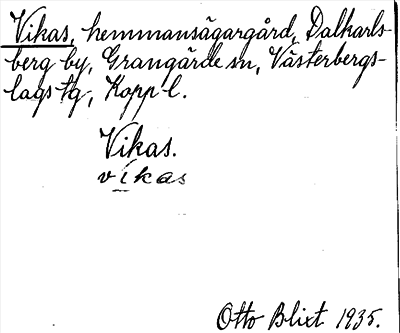 Vikas, hemmansägargård, Dalkarls-
berg by, Grangärde sn, Västerbergs-
lags tg, Kopp l.
Vikas.
víkas
Otto Blixt 1935.